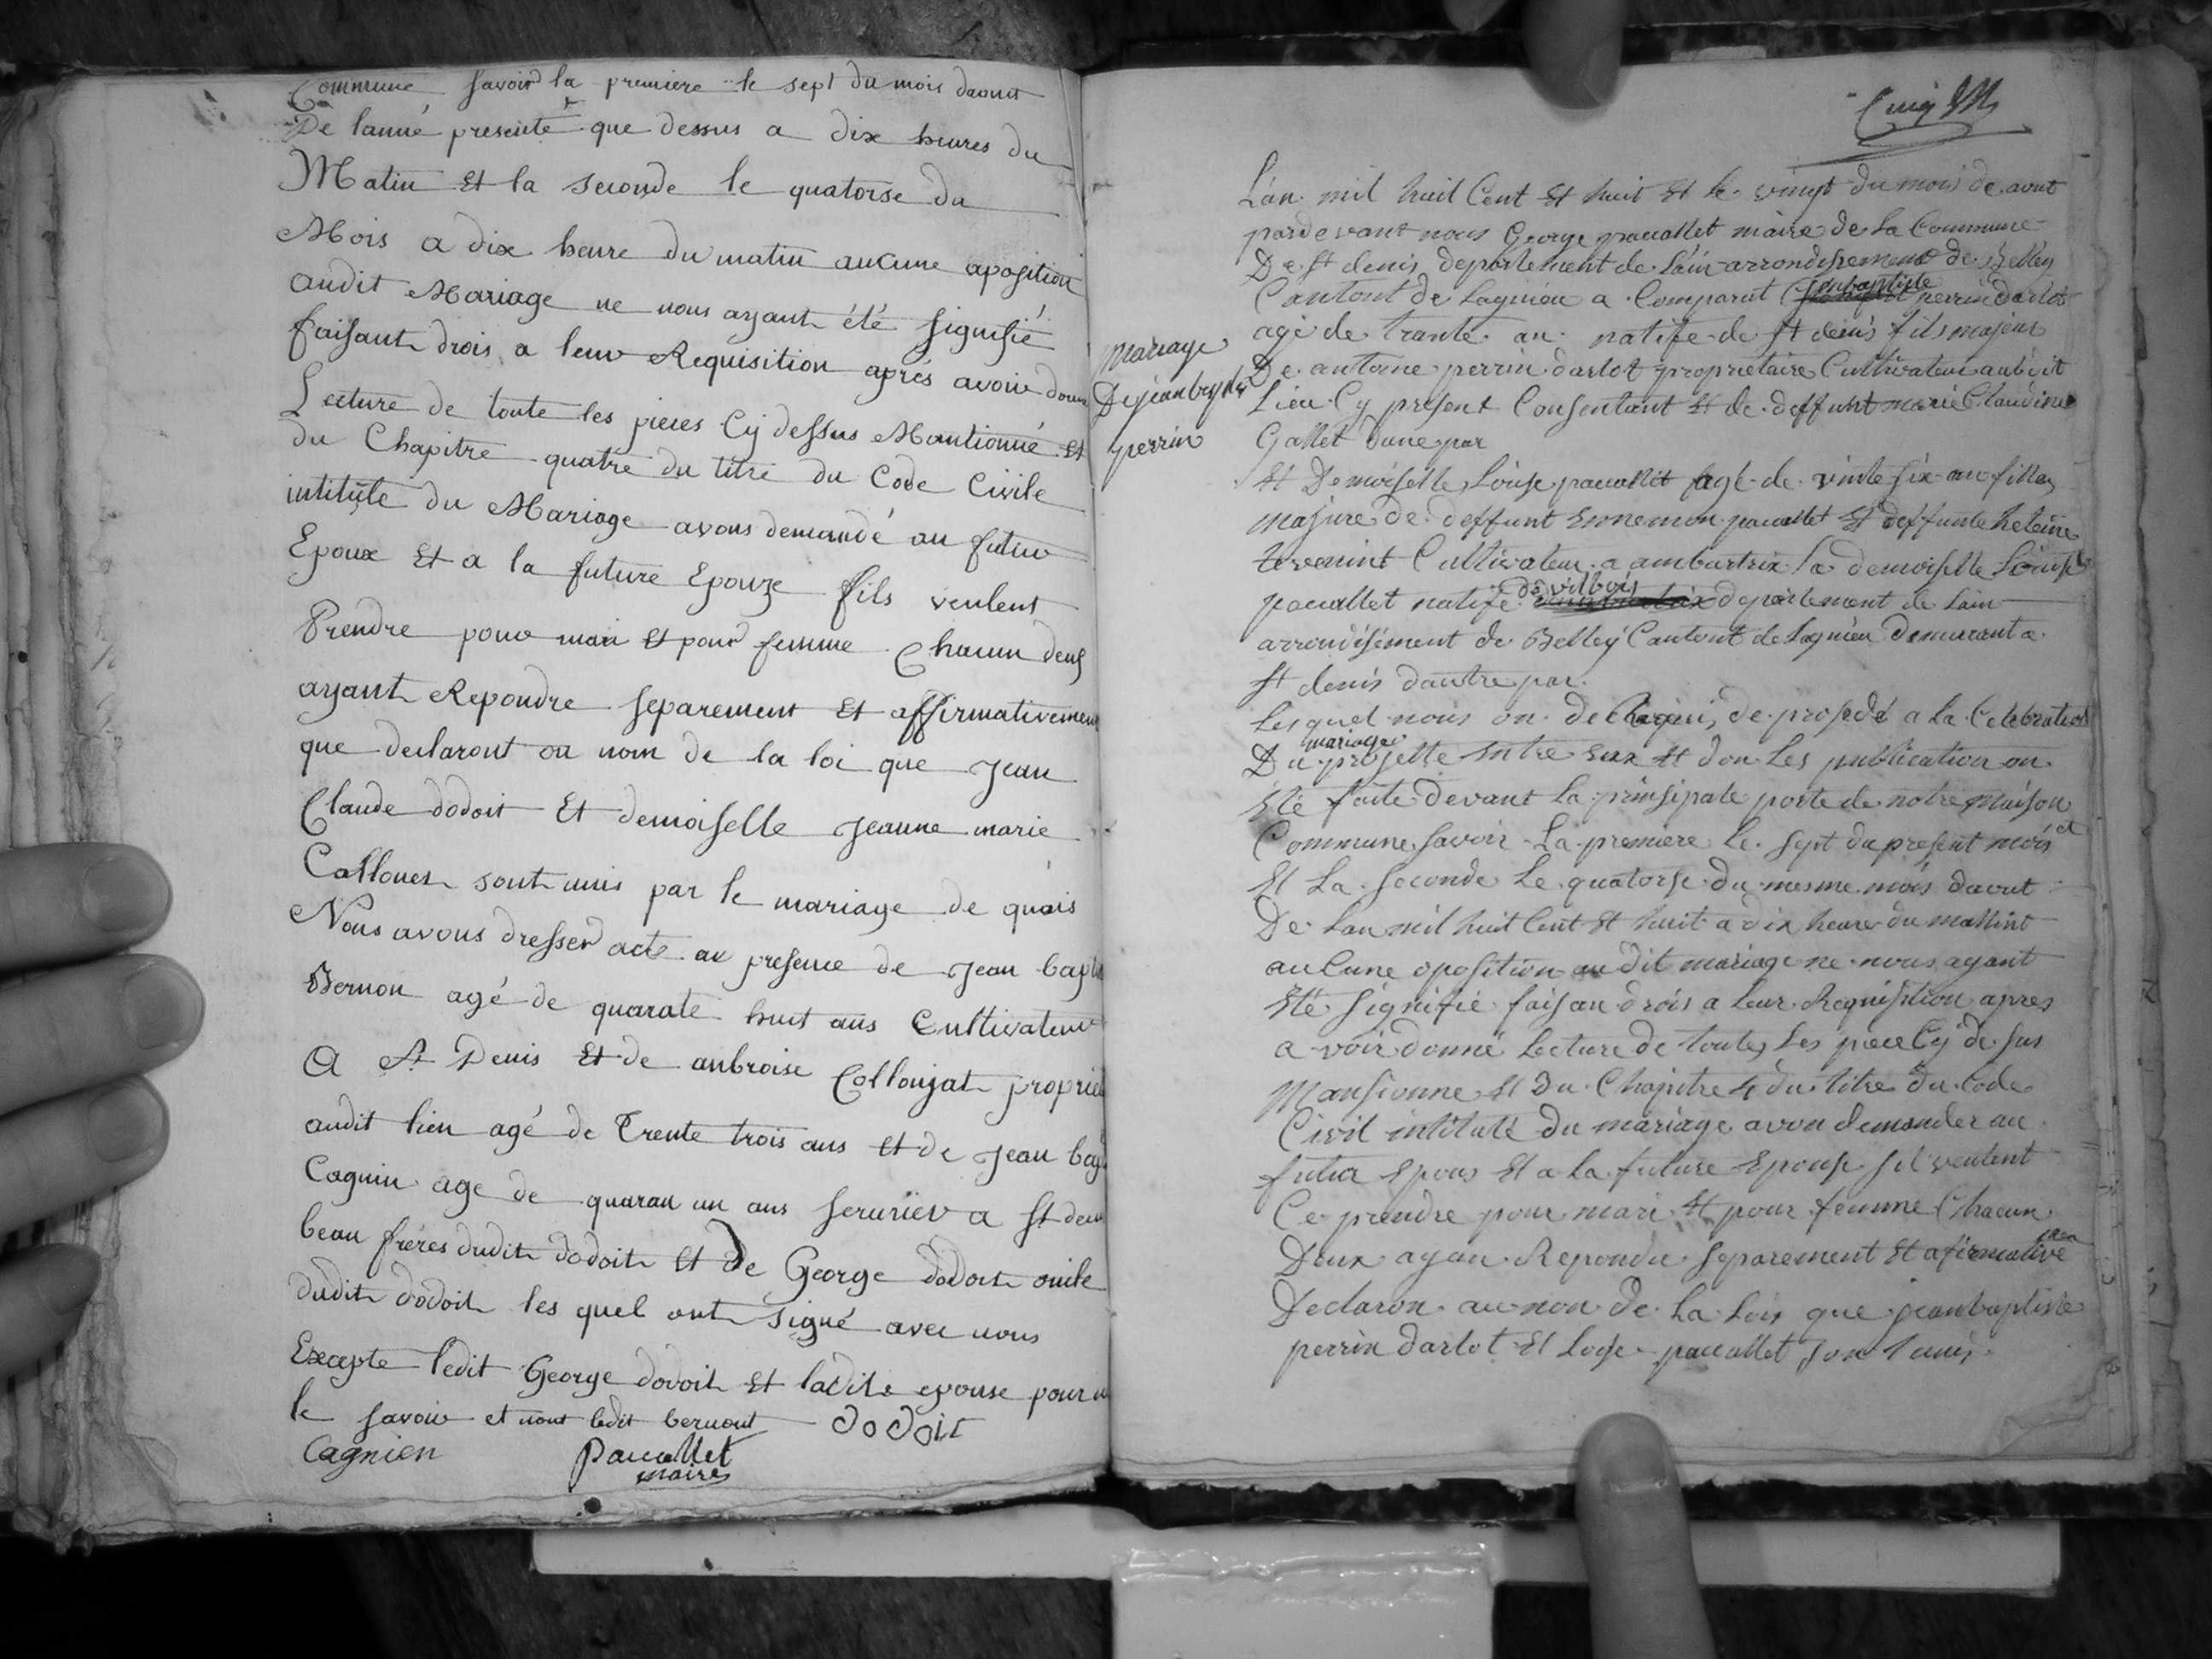 Commune savoir la premiere le sept du mois daout
De lanné presente que dessus a dix heures du
Matin Et la seconde le quatorse du
Mois a dix heure du matin aucune aposition
audit Mariage ne nous ayant été signifié
faisant drois a leur Requisition aprés avoir donn
Lecture de toute les pieces Cy dessus Mantionné Et
du Chapitre quatre du titre du Code Civile
intitûle du Mariage avons demandé au futur
Epoux Et a la future Epouze fils veulent
Prendre pour mari Et pour femme Chacun deux
ayant Repondre separement Et affirmativement
que declaront au nom de la loi que Jean
Claude dodoit Et demoiselle Jeanne marie
Collouet sont unis par le mariage de quois
Nous avons dresser acte au presence de Jean bapt
Bernon agé de quarate huit ans Cultivateur
A St Denis Et de anbroise Collonjat proprie
audit lieu agé de Trente trois ans Et de Jean bap
Cagnin age de quaran un ans seruriér a St den
beau freres dudit dodoit Et De George dodoit oncle
dudit dodoit les quel ont signé avec nous
Excepte ledit George dodoit Et ladite epouse pour
le savoir et nont ledit bernont dodoit
Cagnien Paucallet
maire
mariage
De jean bapte
perrin
Lan mil huit Cent Et huit Et le vingt du mois de aout
pardevant nous George paucallet maire de La Commune
De St denis departement de Lain arrondissement de Belley
Cantont de Lagnieu a Comparut Jenbaptiste perrin darlot
age de trante an natife de St denis fils majeur
De antoine perrin darlot proprietaire Cultivateur audit
Lieu Cy present Consentant Et de deffunt marie Claudine
Gallet dune par
Et Demoiselle Loise paucallet agé de vinte six an filles
majure de deffunt Ennemon paucallet Et deffunte heleine
Cultivateur a ambutrix la demoiselle Louise
paucallet natife de vilbois departement de Lain
arrondisement de Belley Cantont de Lagnieu demurant a
St denis dautre par
Lesquel nous on de Requis de prosedé a La Celebration
Du mariage projette Entre Eux Et don Les publication on
Eté faite devant La prinsipale porte de notre maison
Commune savoir La premiere le sept du present mois
Et La seconde Le quatorse du mesme mois daout
De Lan mil huit Cent Et huit a dix heure du mattint
auCune oposition audit mariage ne nous ayant
Eté signifie faisan drois a Leur Requisition apres
a voir donné Lecture de toutes Les piece Cy de sus
Mansionne Et Du Chapitre 4 du titre du Code
Civil intitulé du mariage avon demander au
futur Epous Et a La future Epouse sil veulent
Ce prendre pour mari Et pour femme Chacun
Deux ayan Repondu separement Et afirmative
Declaron au non de La Loix que jeanbaptiste
perrin darlot Et Loise paucallet son t unis